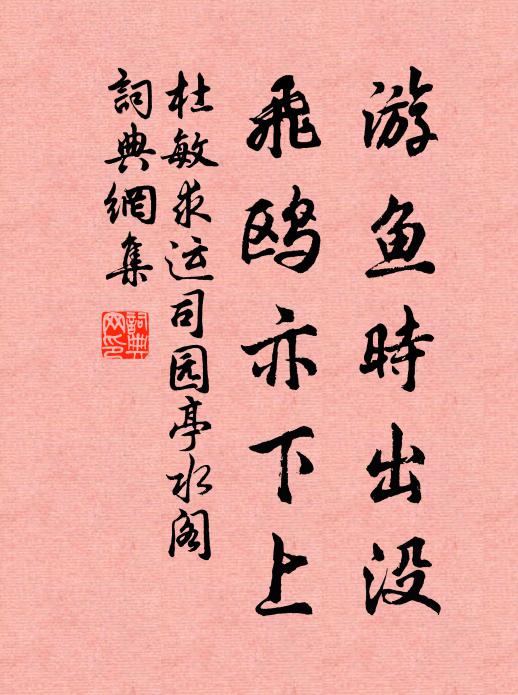 游鱼時出没
飛鸥亦下上
杜敏求运司园亭水阁
詞典網集
詞典網印